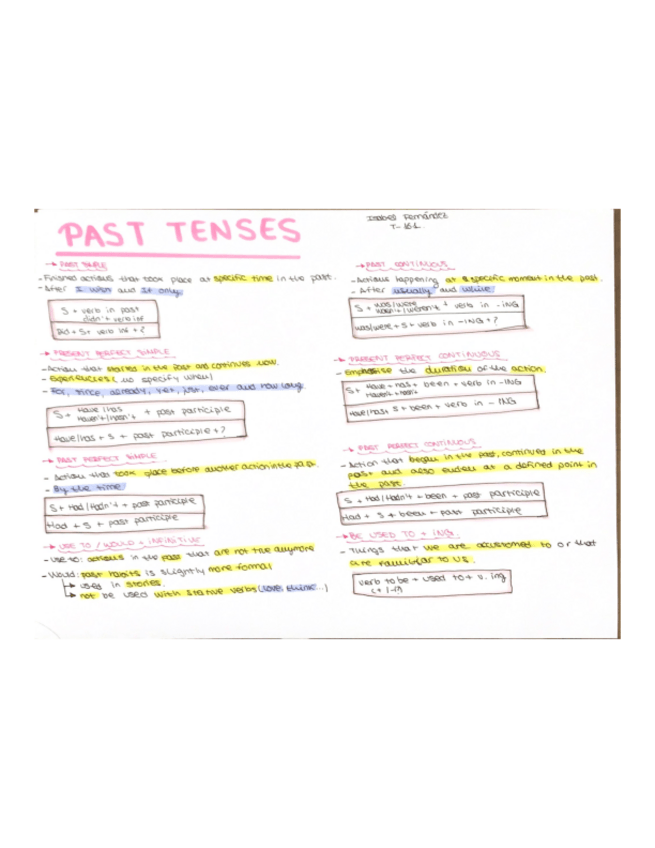 PAST TENSES
Isabel Fernández
T- 16.1.
→ PAST SIMPLE
- Finished actions that took place at specific time in the past.
- After I wish and If only.
S + verb in past
didn't + verb inf
Did + S + verb inf + ?
→ PRESENT PERFECT SIMPLE
- Action that started in the past and continues now.
- Experiences (no specify when)
- For, since, already, yet, just, ever and how long.
S + Have / has
Haven't / hasn't + past participle
Have/has + S + past participle + ?
→ PAST PERFECT SIMPLE
- Actions that took place before another action in the past.
- By the time
S + Had / Hadn't + past participle
Had + S + past participle
→ USE TO / WOULD + INFINITIVE
- Use to: actions in the past that are not true anymore
- Would: past habits is slightly more formal
↳ used in stories.
↳ not be used with stative verbs (love, think...)
→ PAST CONTINUOUS
- Actions happening at a specific moment in the past.
- After usually and while
S + was/were
wasn't / weren't + verb in -ING
was/were + S + verb in -ING + ?
→ PRESENT PERFECT CONTINUOUS
- Emphasise the duration of the action.
S + Have - has + been + verb in -ING
Haven't - hasn't
Have/has + S + been + verb in -ING
→ PAST PERFECT CONTINUOUS
- Action that began in the past, continued in the
past and also ended at a defined point in
the past.
S + Had / Hadn't + been + past participle
Had + S + been + past participle
→ BE USED TO + ING.
- Things that we are accustomed to or that
are familiar to us.
verb to be + used to + v. ing
(+ / -/?)